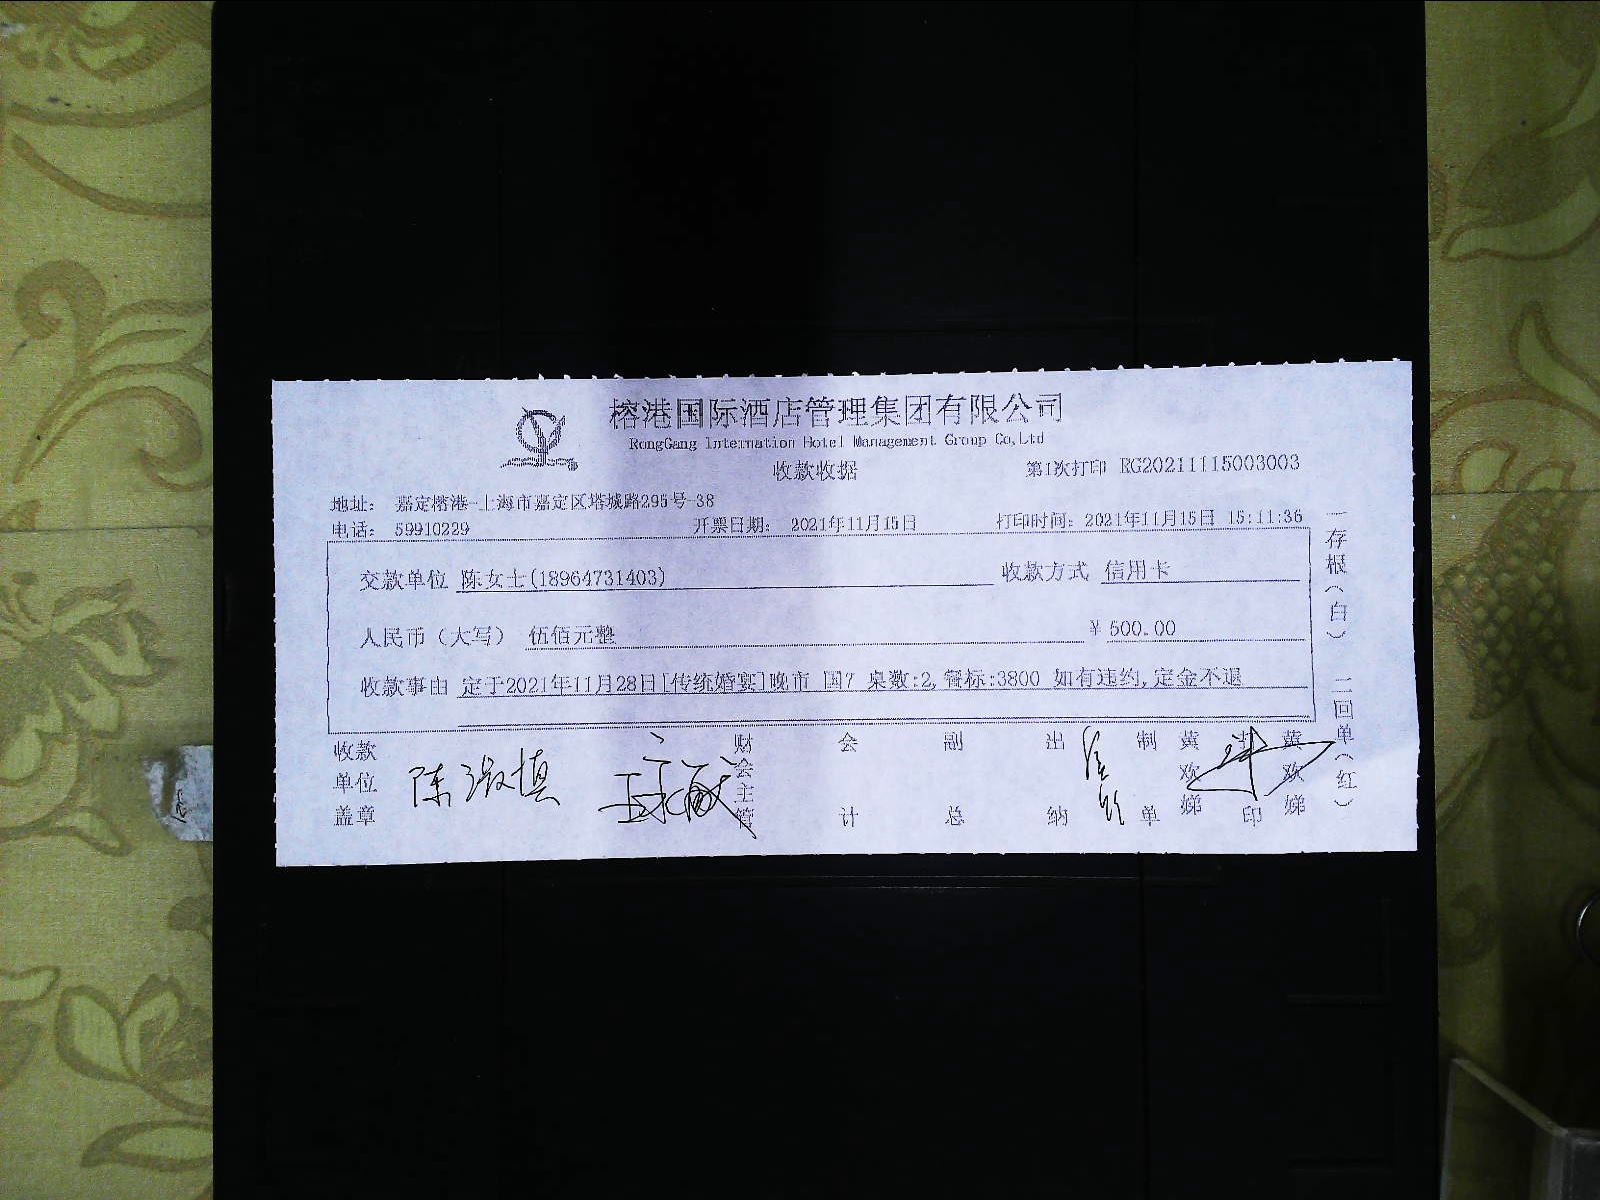 榕港国际酒店管理集团有限公司
RongGang Internation Hotel Management Group Co,Ltd
收款收据
第1次打印 RG20211115003003
地址： 嘉定榕港-上海市嘉定区塔城路295号-38
电话： 59910229 开票日期： 2021年11月15日 打印时间：2021年11月15日 15:11:36
交款单位 陈女士(18964731403) 收款方式 信用卡
人民币（大写） 伍佰元整 ￥500.00
收款事由 定于2021年11月28日[传统婚宴]晚市 国7 桌数:2,餐标:3800 如有违约,定金不退
收款单位盖章
陈淑慎
财会主管
会计
副总
出纳
制单
黄欢娣
打印
黄欢娣
一存根（白） 二回单（红）